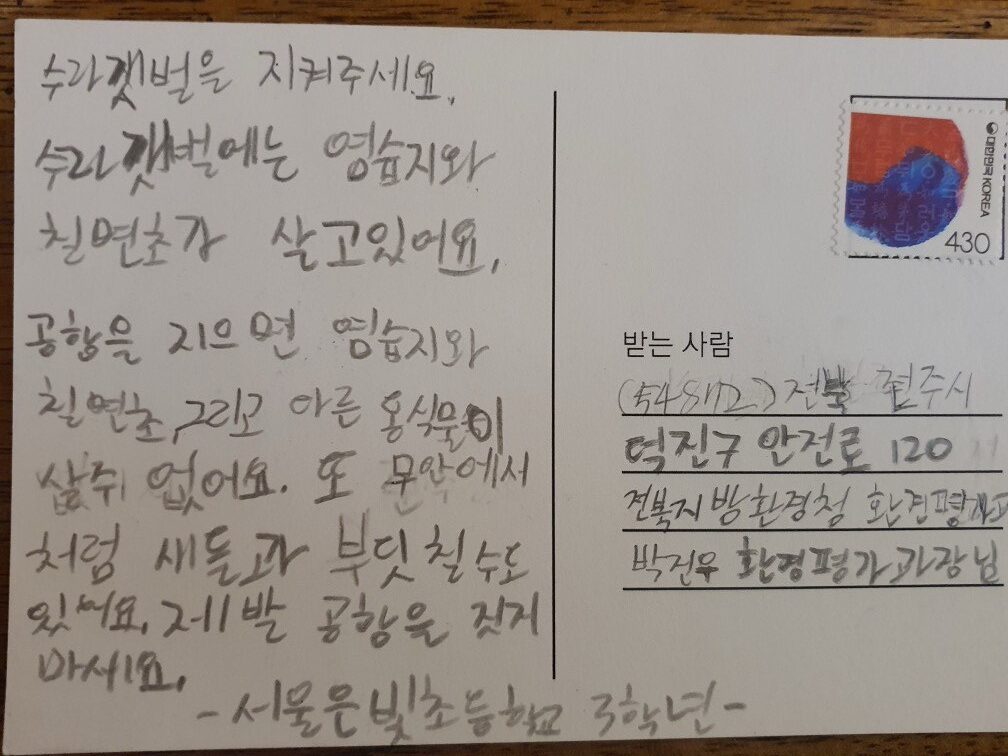 수라갯벌을 지켜주세요.
수라갯벌에는 염습지와
칠면초가 살고있어요.
공항을 지으면 염습지와
칠면초,그리고 다른 동식물이
삶쥐 없어요. 또 무안에서
처럼 새들과 부딧칠수도
있써요. 제발 공항을 짓지
마세요.
-서울은빛초등학교 3학년-
대한민국 KOREA
430
받는 사람
(54872) 전북 전주시
덕진구 안전로 120
전북지방환경청 환경평가과
박진우 환경평가과장님